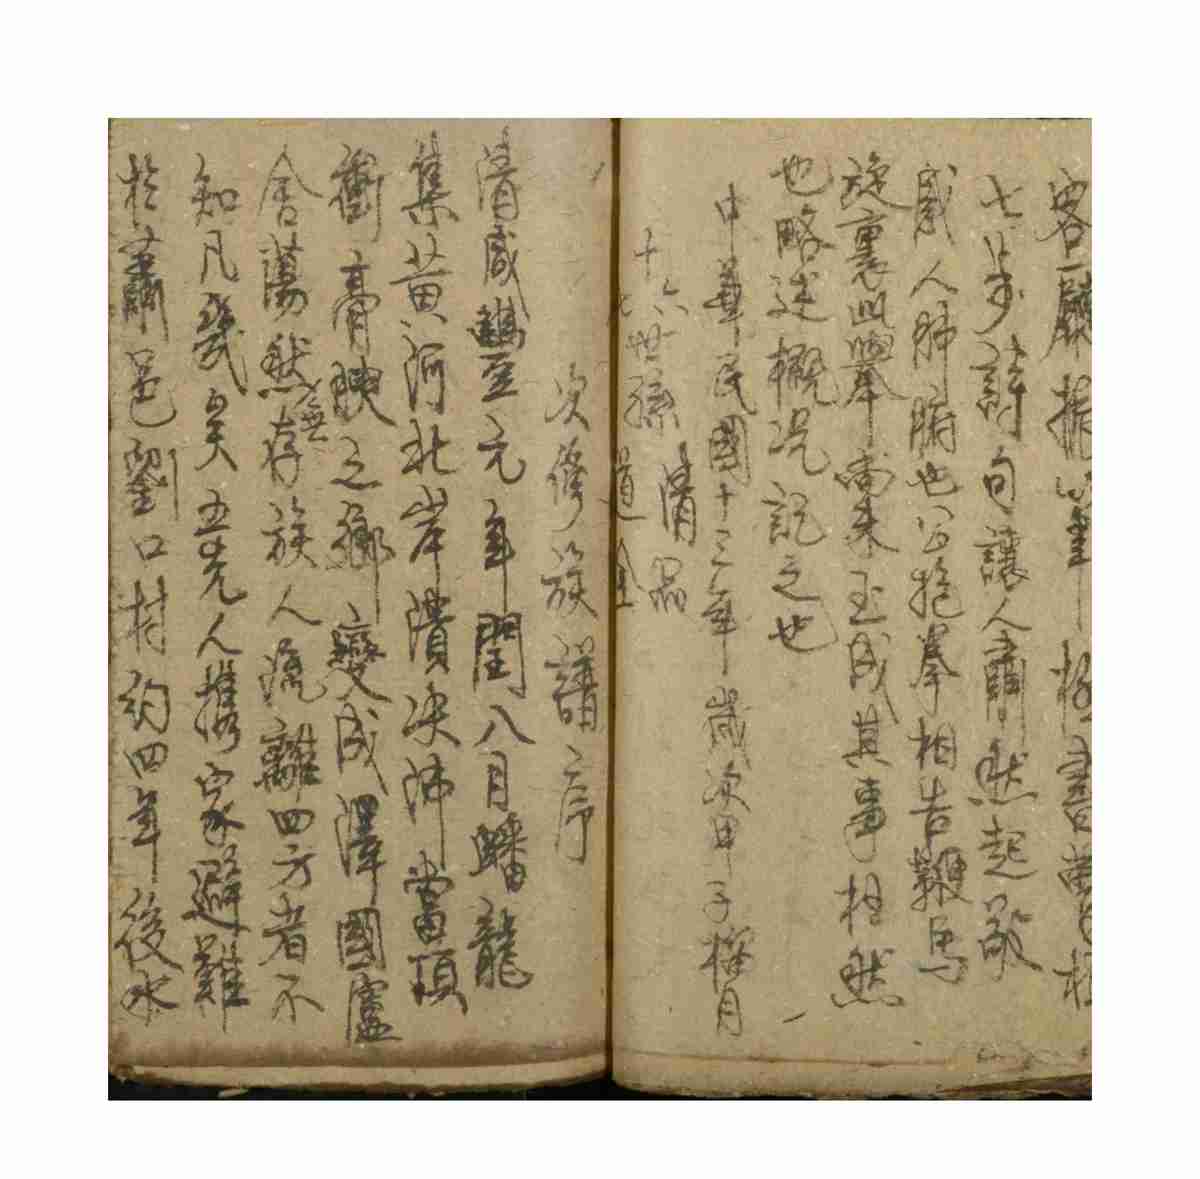 客廳握筆極書當是極
七步詩句讓人肅然起敬
感人肺腑也公抱拳相告鞭馬
旋裏此舉尚未玉成其事枉然
也略述概况記之也
中華民國十三年歲次甲子梅月
十六世孫清品
七道全
次修族譜序
清咸豐五元年閏八月蟠龍
集黃河北岸潰决沛當頂
衝膏腴之鄉變成澤國廬
舍蕩然無存族人流離四方者不
知凡幾矣五先人攜家避難
於蕭邑劉口村約四年後水